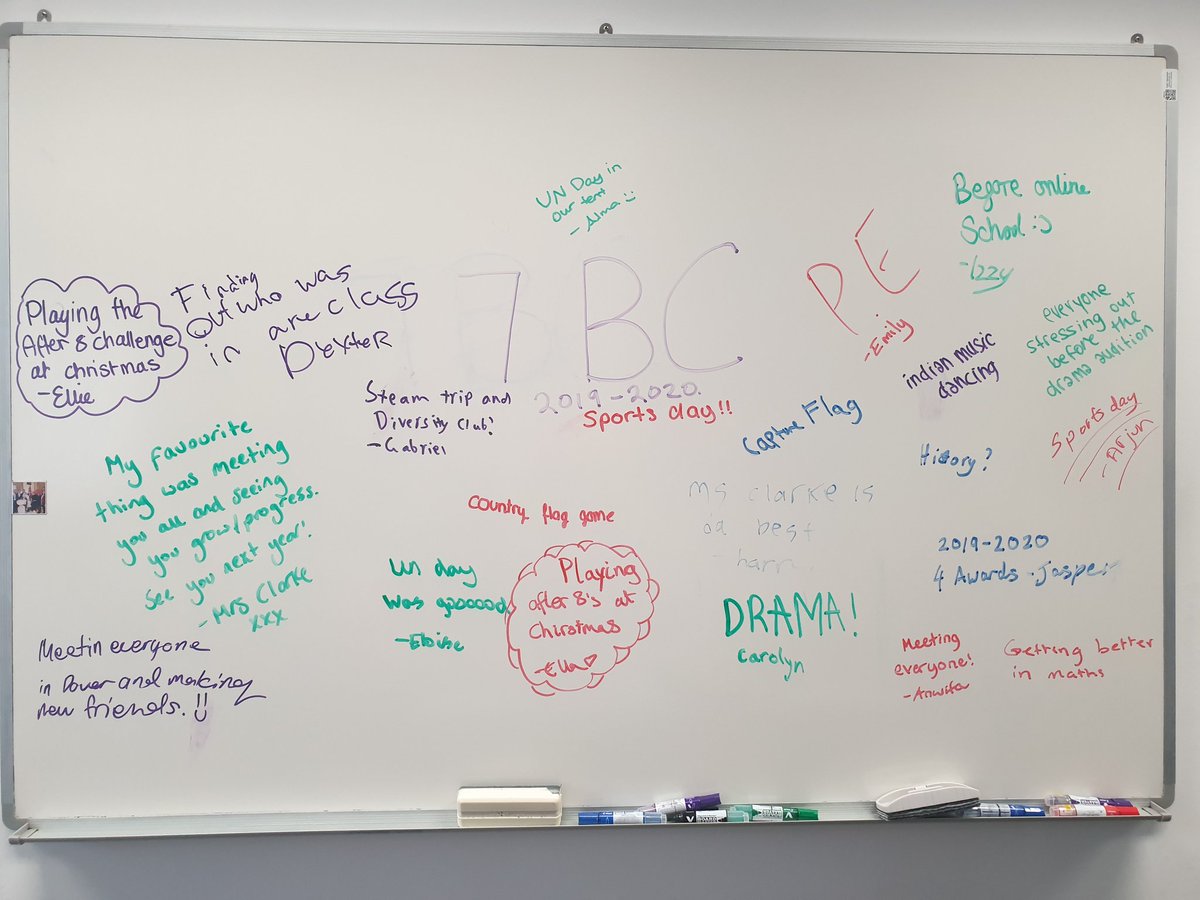 UN Day in
our tent
- Alma :)
Before online
School :)
- Izzy
PE
- Emily
7BC
2019-2020
Sports day!!
Playing the
After 8 challenge
at christmas
- Ellie
Finding
Out who was
in are class
Dexter
Steam trip and
Diversity Club?
- Gabriel
indian music
dancing
everyone
stressing out
before the
drama audition
Capture Flag
Sports day
- Arjun
History?
My favourite
thing was meeting
you all and seeing
you grow/progress.
See you next year!
- Mrs Clarke
xxx
Country flag game
Ms clarke is
da best
- harr
2019-2020
4 Awards - Jasper
Un day
was goooood
- Eloise
Playing
after 8's at
Chirstmas
- Ella ♡
DRAMA!
Carolyn
Meeting
everyone!
- Anwita
Getting better
in maths
Meetin everyone
in Dover and making
new friends. !!